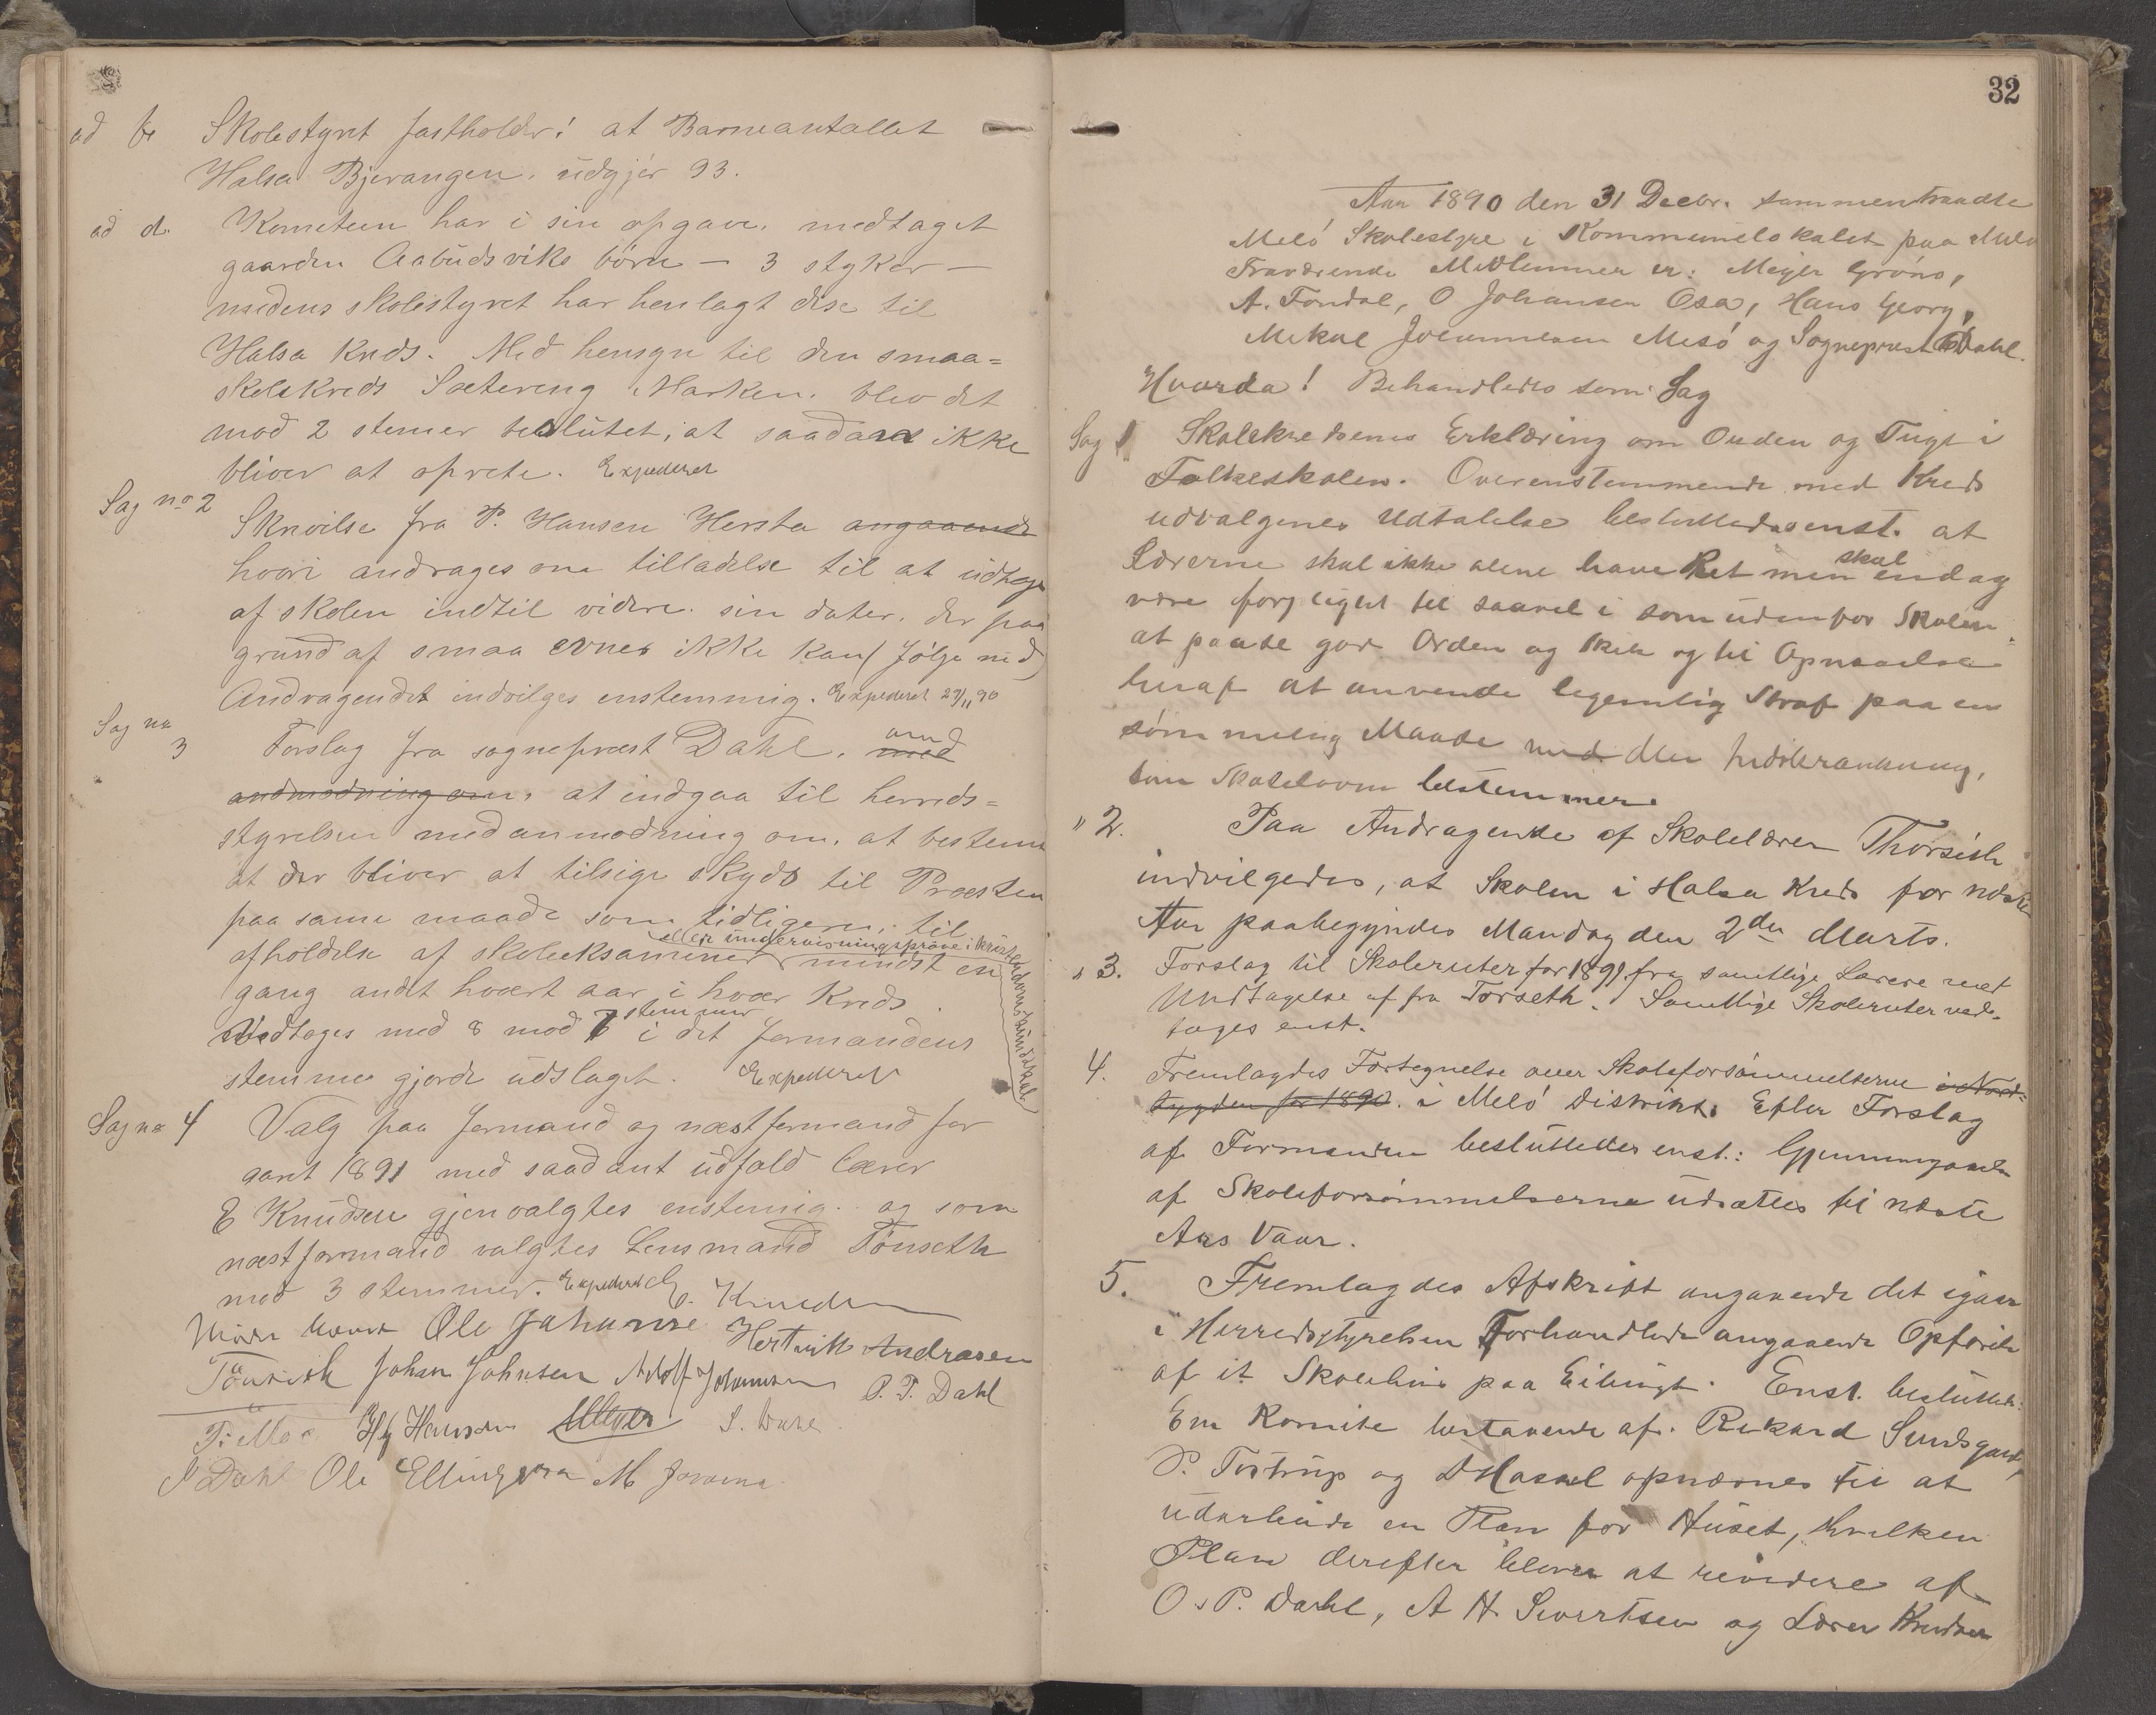 ad b Skolestyret fastholder! at Barneantallet
Halsa Bjerangen. udgjør 93.
ad d. Kometeen har i sin opgave, medtaget
gaarden Aabudsviks børn — 3 styker —
medens skolestyret har henlagt dise til
Halsa Kreds. Med hensyn til den smaa=
skolekreds Sætereng Marken. blev det
mod 2 stemer beslutet; at saadan ikke
bliver at oprete. Expederet
Sag no 2
Skrivelse fra P. Hansen Hersta angaaende
hvori andrages om tilladelse til at udtage
af skolen indtil videre. sin dater. der paa
grund af smaa evner ikke kan følge med
Andragendet indvilges enstemmig. Expederet 29/11 90
Sag no 3 Forslag fra sogneprest Dahl. med om
andmodning om, at indgaa til herreds=
styrelsen med anmodning om, at bestem
at der bliver at tilsige skyds til Præsten
paa same maade som tidligere, til
eller undervisningsprøve i kristendomskundskab
afholdelse af skoleeksamener mindst en
gang andt hvert aar i hver Kreds.
Vedtages med 8 mod 7 stemmer i det formandens
stemme gjorde udslaget. Expederet
Sag no 4 Valg paa formand og næstformand for
aaret 1891 med saadant udfald lærer
E Knudsen gjenvalgtes enstemig. og som
næstformand valgtes Lensmand Tönseth
mod 3 stemmer. Expederet E. Knudsen
Ole Johanse Hertvik Andrasen
Tönseth Johan Johnsen Adolf Johannsen P. T. Dahl
Hg Hansen Meyer
P Dahl Ole Ellingsen M
32
Aar 1890 den 31 Decbr. sammentraadte
Melö Skolestyre i Kommunelokalet paa Melö
Fraværende Medlemmer er: Meyer Grönö,
A. Fondal, O Johansen Osa, Hans Georg,
Mikal Johannesen Mesö og Sogneprest Dahl.
Hvorda! Behandledes som Sag
Sag 1 Skolekredsenes Erklæring om Orden og Tugt i
Folkeskolen. Overenstemmende med Kreds
udvalgenes Udtalelse besluttedes enst. at
Lærerne skal ikke alene have Ret men skal endog
være forpligtet til saavel i som udenfor Skolen
at paase god Orden og Skik og til Opnaaelse
heraf at anvende legemlig Straf paa en
sømmelig Maade med den Indskrænkning,
som Skoleloven bestemmer.
" 2. Paa Andragende af Skolelærer Thorseth
indvilgedes, at Skolen i Halsa Kreds for næste
Aar paabegyndes Mandag den 2den Marts.
" 3. Forslag til Skoleruter for 1891 fra samtlige Lærere med
Undtagelse af fra Torseth. Samtlige Skoleruter ved-
tages enst.
4. Fremlagdes Fortegnelse over Skoleforsømmelserne i Nord-
bygden for 1890. i Melö Distrikt. Efter Forslag
af Formanden besluttedes enst.: Gjennemgaaelse
af Skoleforsømmelserne udsættes til næste
Aars Vaar.
5. Fremlagdes Afskrift angaaende det igaar
i Herredstyrelsen Forhandlede angaaende Opførelse
af et Skolehus paa Eiling. Enst. besluttet:
En Komite bestaaende af. Rikard Sundsgaard,
P. Tostrup og D Hassel opnævnes til at
udarbeide en Plan for Huset, hvilken
Plan derefter bliver at revidere af
O. P. Dahl, A H. Sivertsen og Lærer Knudsen